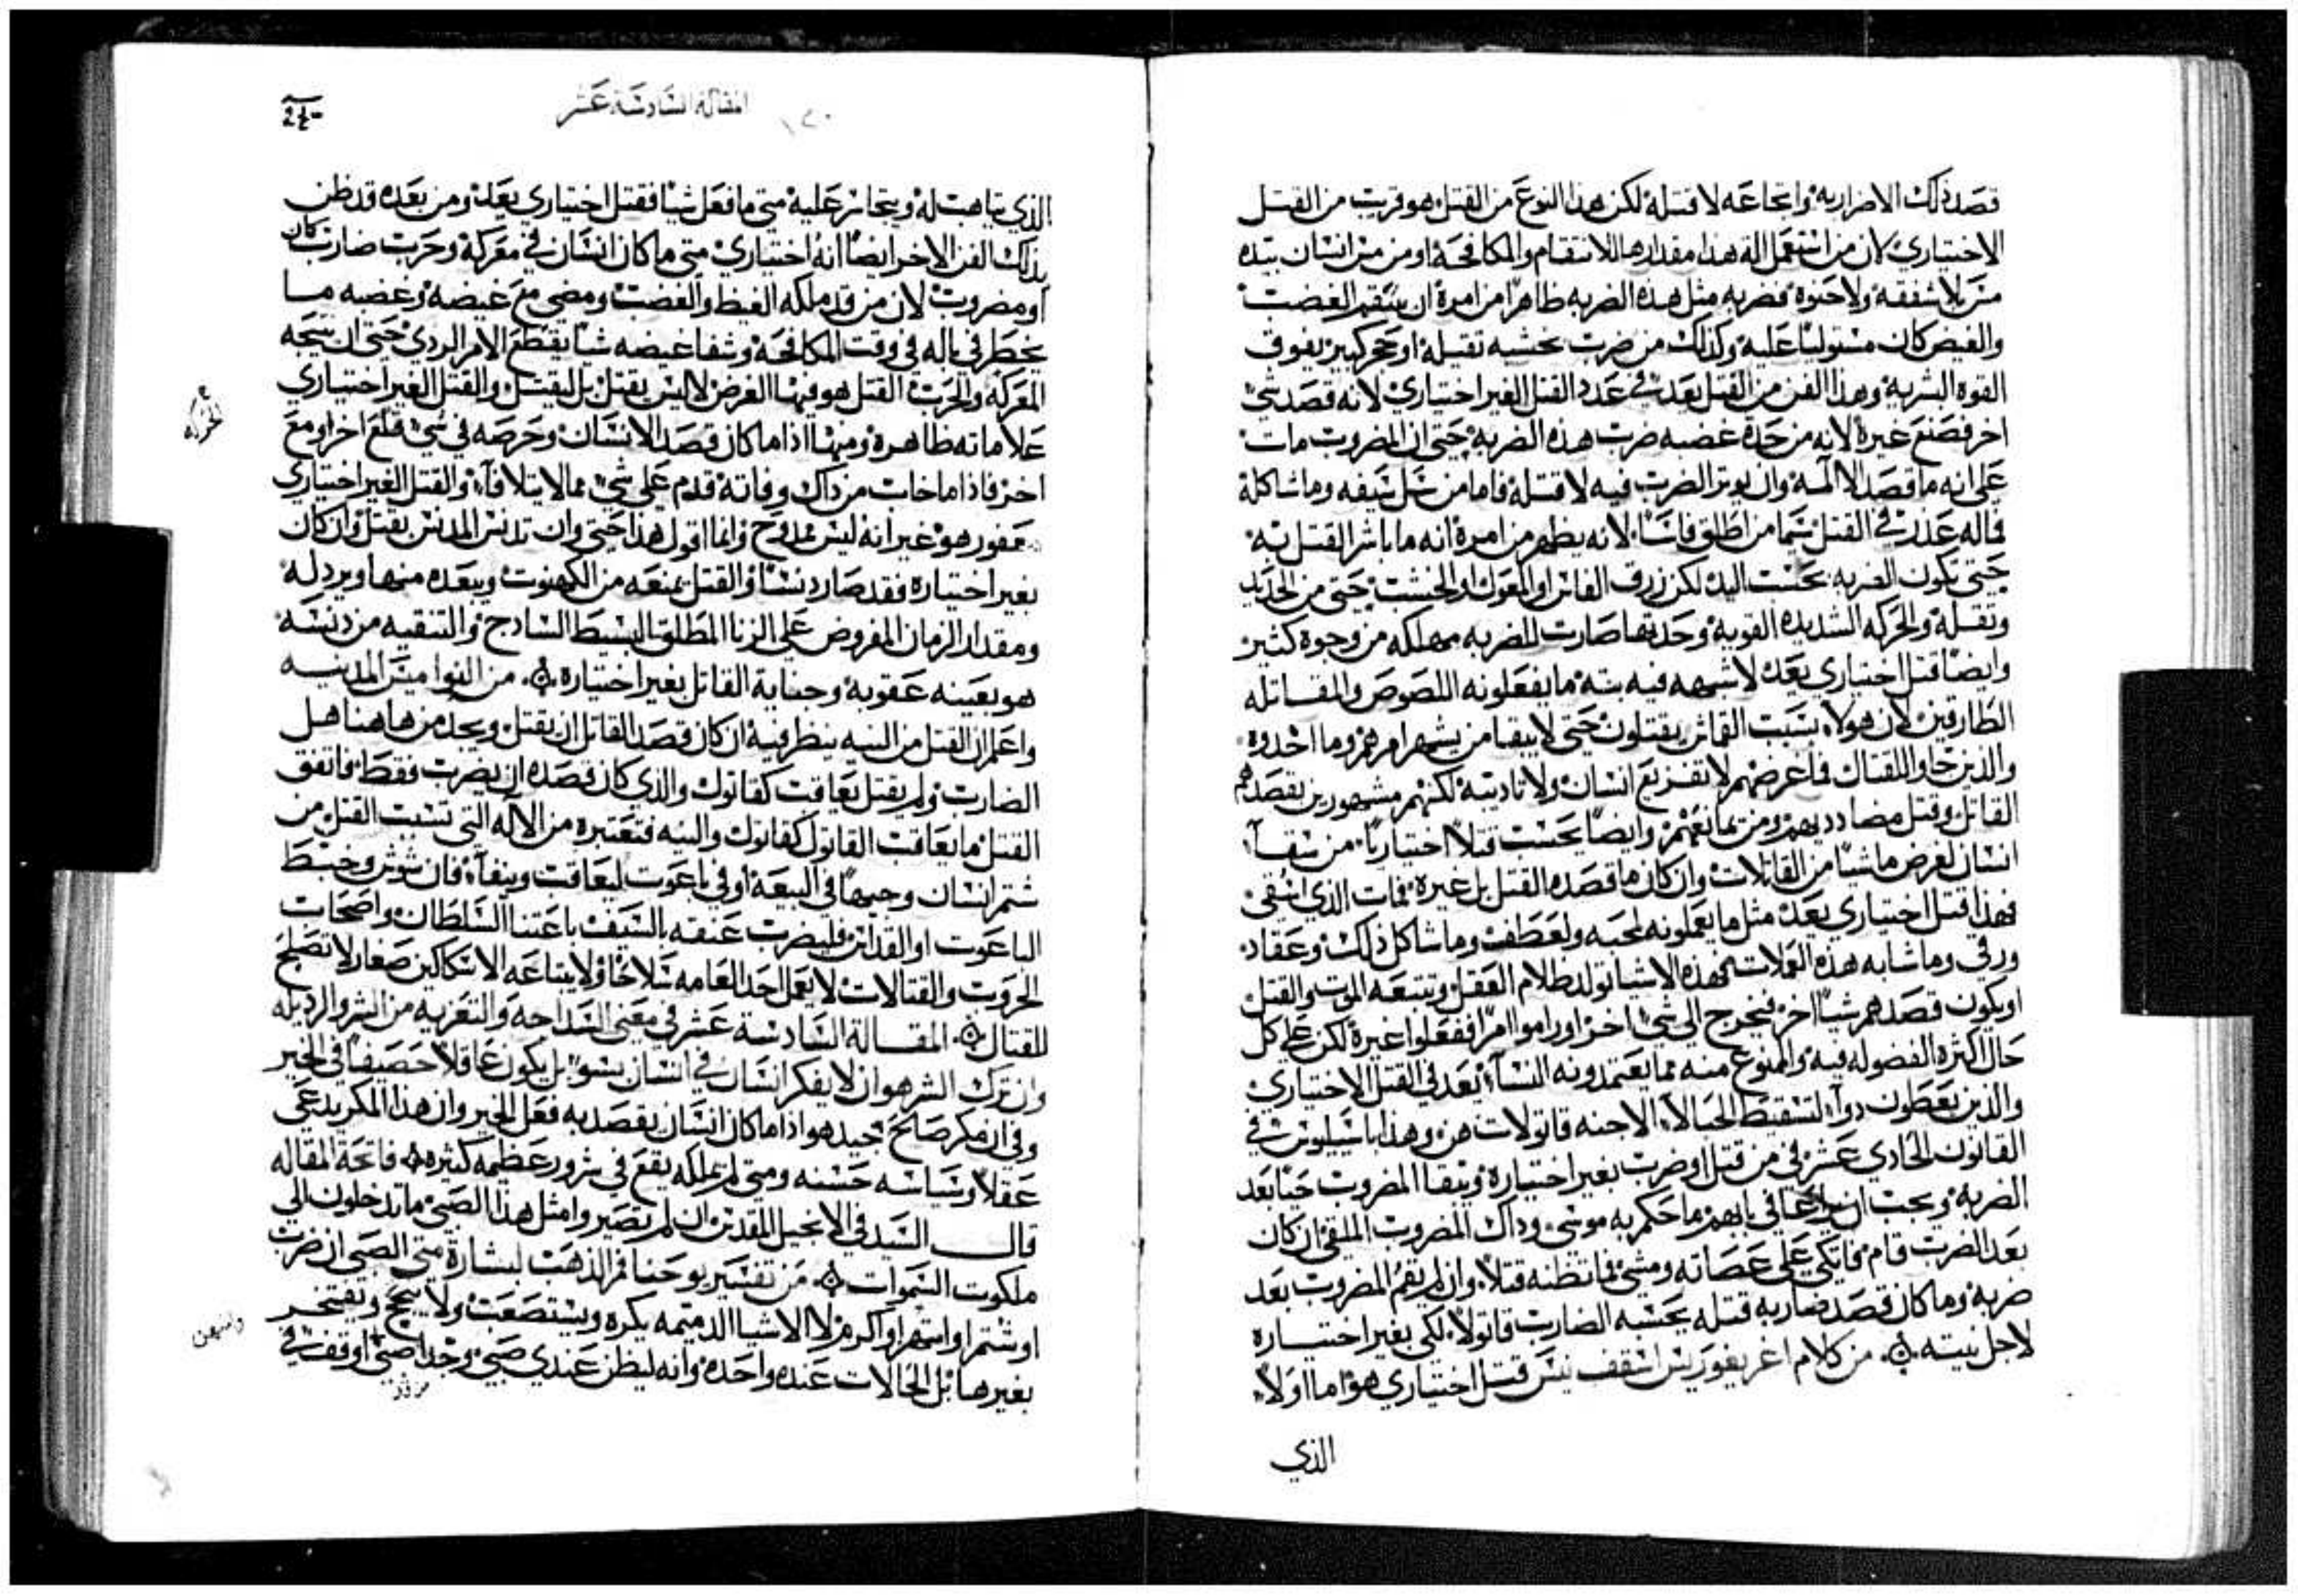 قصد ذلك الاضرار به واتجاعه لا قتله لكن هذا النوع من القتل هو قريب من القتل
الاختياري لان من استعمل الة هذا مقدارها للانتقام والمكافحة او من مس انسان بيده
بلا شفقه ولا حنوه فضربه مثل هذه الضربه ظاهرًا من امره ان بتقم الغضب
والغيض كان مستوليًا عليه وكذلك من ضرب بخشبه ثقيله او حجر كبير يفوق
القوه البشريه وهذا الفن من القتل يعد في عدد القتل الغير اختياري لانه قصد شي
اخر فصنع غيره لانه من حدة غضبه ضرب هذه الضربه حتى ان المضروب مات
على انه ما قصد الا المه وان يوتر الضرب فيه لا قتله فاما من سل سيفه وما شاكلة
فماله عذر في القتل سيما من اطلق فاسًا لانه يظهر من امره انه ما باشر القتل بيه
حتى تكون الضربه بحسب اليد لكن زرق الفاس او المعول او الخشب حتى من الحديد
وثقله والحركه الشديده القويه وحدتها صارت للضربه مهلكه من وجوه كثيره
وايضًا قتل اختياري يعد لا شبهه فيه بته ما يفعلونه اللصوص والمقاتله
الطارقين لان هولاء بسبب القماش يقتلون حتى لا يبقا من يشهر امرهم وما اخدوه
والذين جاوا للقتال فما غرضهم لا تفزيع انسان ولا تاديبة لكنهم مشهورين بقصدهم
القاتل وقتل مضادديهم ومن يمانعهم وايضًا يحسب قتلًا اختياريًا من سقا
انسان لغرض ما شيًا من القاتلات وان كان ما قصده القتل بل غيره فمات الذي اسُقي
فهذا قتل اختياري يعد مثل ما يعملونه لمحبه ولعطف وما شاكل ذلك وعقاد
ورقي وما شابه هذه العملات فهذه الاشيا تولد ظلام العقل وتتبعه الموت والقتل
او يكون قصدهم شيًا اخر فيخرج الى شي اخر او راموا امرًا ففعلوا غيره لكن على كل
حال اكثره الفضوله فيه والممنوع منه مما يعتمدونه النساء يعد في القتل الاختياري
والذين يعطون دواء لتسقيط الحبالا الاجنه قاتولات هن وهذا باسيليوس في
القانون الحادي عشر في من قتل او ضرب بغير اختياره ويبقا المضروب حيًا بعد
الضربه ويجب ان يراعا في بابهم ما حكم به موسى وداك المضروب الملقي ان كان
بعد الضرب قام فاتكى على عصاته ومشي فما تظنه قتلًا وان لم يقم المضروب بعد
ضربه وما كان قصد ضاربه قتله يحسبه الضارب قاتولًا لكي بغير اختياره
لاجل نيته من كلام اغريغوريس اسقف نيس قتل اختياري هو اما اولًا
الذي
المقاله السادسة عشر
الذي يتاهب له ويتجاسر عليه متى ما فعل شيًا فقتل اختياري يعد ومن بعده قد ظن
بذلك الفن الاخر ايضًا انه اختياري متى ما كان انسان في معركة وحرب ضارب كان
او مضروب لان من قد ملكه الغيظ والغضب ومضى مع غيضه وغضبه ما
يخطر في باله في وقت المكافحة وشفا غيضه شيًا يقطع الامر الردي حتى ان نتيجه
المعركه والحرب القتل هو فيها الغرض لا ليس يقتل بل ليقتل والقتل الغير اختياري
علاماته ظاهرة ومنها اذا ما كان قصد الانسان وحرصه في شي فلغ اخر او مع
اخر فاذا ما خاب من داك وفاته قدم على شي مما لا يتلافاه والقتل الغير اختياري
مغفور هو غير انه ليس ممدوح وانما اقول هذا حتى وان تدنس المدنس بقتل وان كان
بغير اختياره فقد صار دنسًا والقتل يمنعه من الكهنوت ويبعده منها ويردله
ومقدار الزمان المفروض على الزنا المطلق البسيط السادج والتنقيه من دنسه
هو بعينه عقوبه وجناية القاتل بغير اختياره من النواميس المدنيه
واعلم ان القتل من النيه ينظر فيه ان كان قصد القاتل ان يقتل ويجد من هاهنا هل
الضارب ولم يقتل يعاقب كقاتول والذي كان قصده ان يضرب فقط فاتفق
القتل ما يعاقب القاتول كقاتول والنيه فتعتبره من الاله التي تسبب القتل من
شتم انسان وجيهًا في البيعة او في باعوت ليعاقب وينفاء فان شوش وخبط
الباعوت او القداس فليضرب عنقه بالسيف باعتنا السلطان واصحاب
الحروب والقتالات لا يعمل احد العامه سلاحًا ولا يبتاعه الا سكاكين صغار لا تصلح
للقتال المقالة السادسة عشر في معنى السداجه والتعزيه من الشر والرديله
وان ترك الشر هو ان لا يفكر انسان في انسان بسو بل يكون عاقلًا حصيفًا في الخير
وفي ان مكر صالح جيد هو اذا ما كان انسان يقصد به فعل الخير وان هذا المكر يدعى
عقلًا وسياسه حسنه ومتى لم يملكه يقع في شرور عظيمه كثيره فاتحة المقاله
قال السيد في الانجيل المقدس ان لم تصيروا مثل هذا الصبي ما تدخلون الى
ملكوت السموات من تفسير يوحنا فم الذهب لبشارة متى الصبي ان ضرب
او شتم او استهرا او اكرم لا الاشيا الدميمه يكره ويستصعب ولا يبجح ويفتخر
بغيرها بل الحالات عنده واحده وانه ليظن عندي صبي وجدًا صبي اوقف في